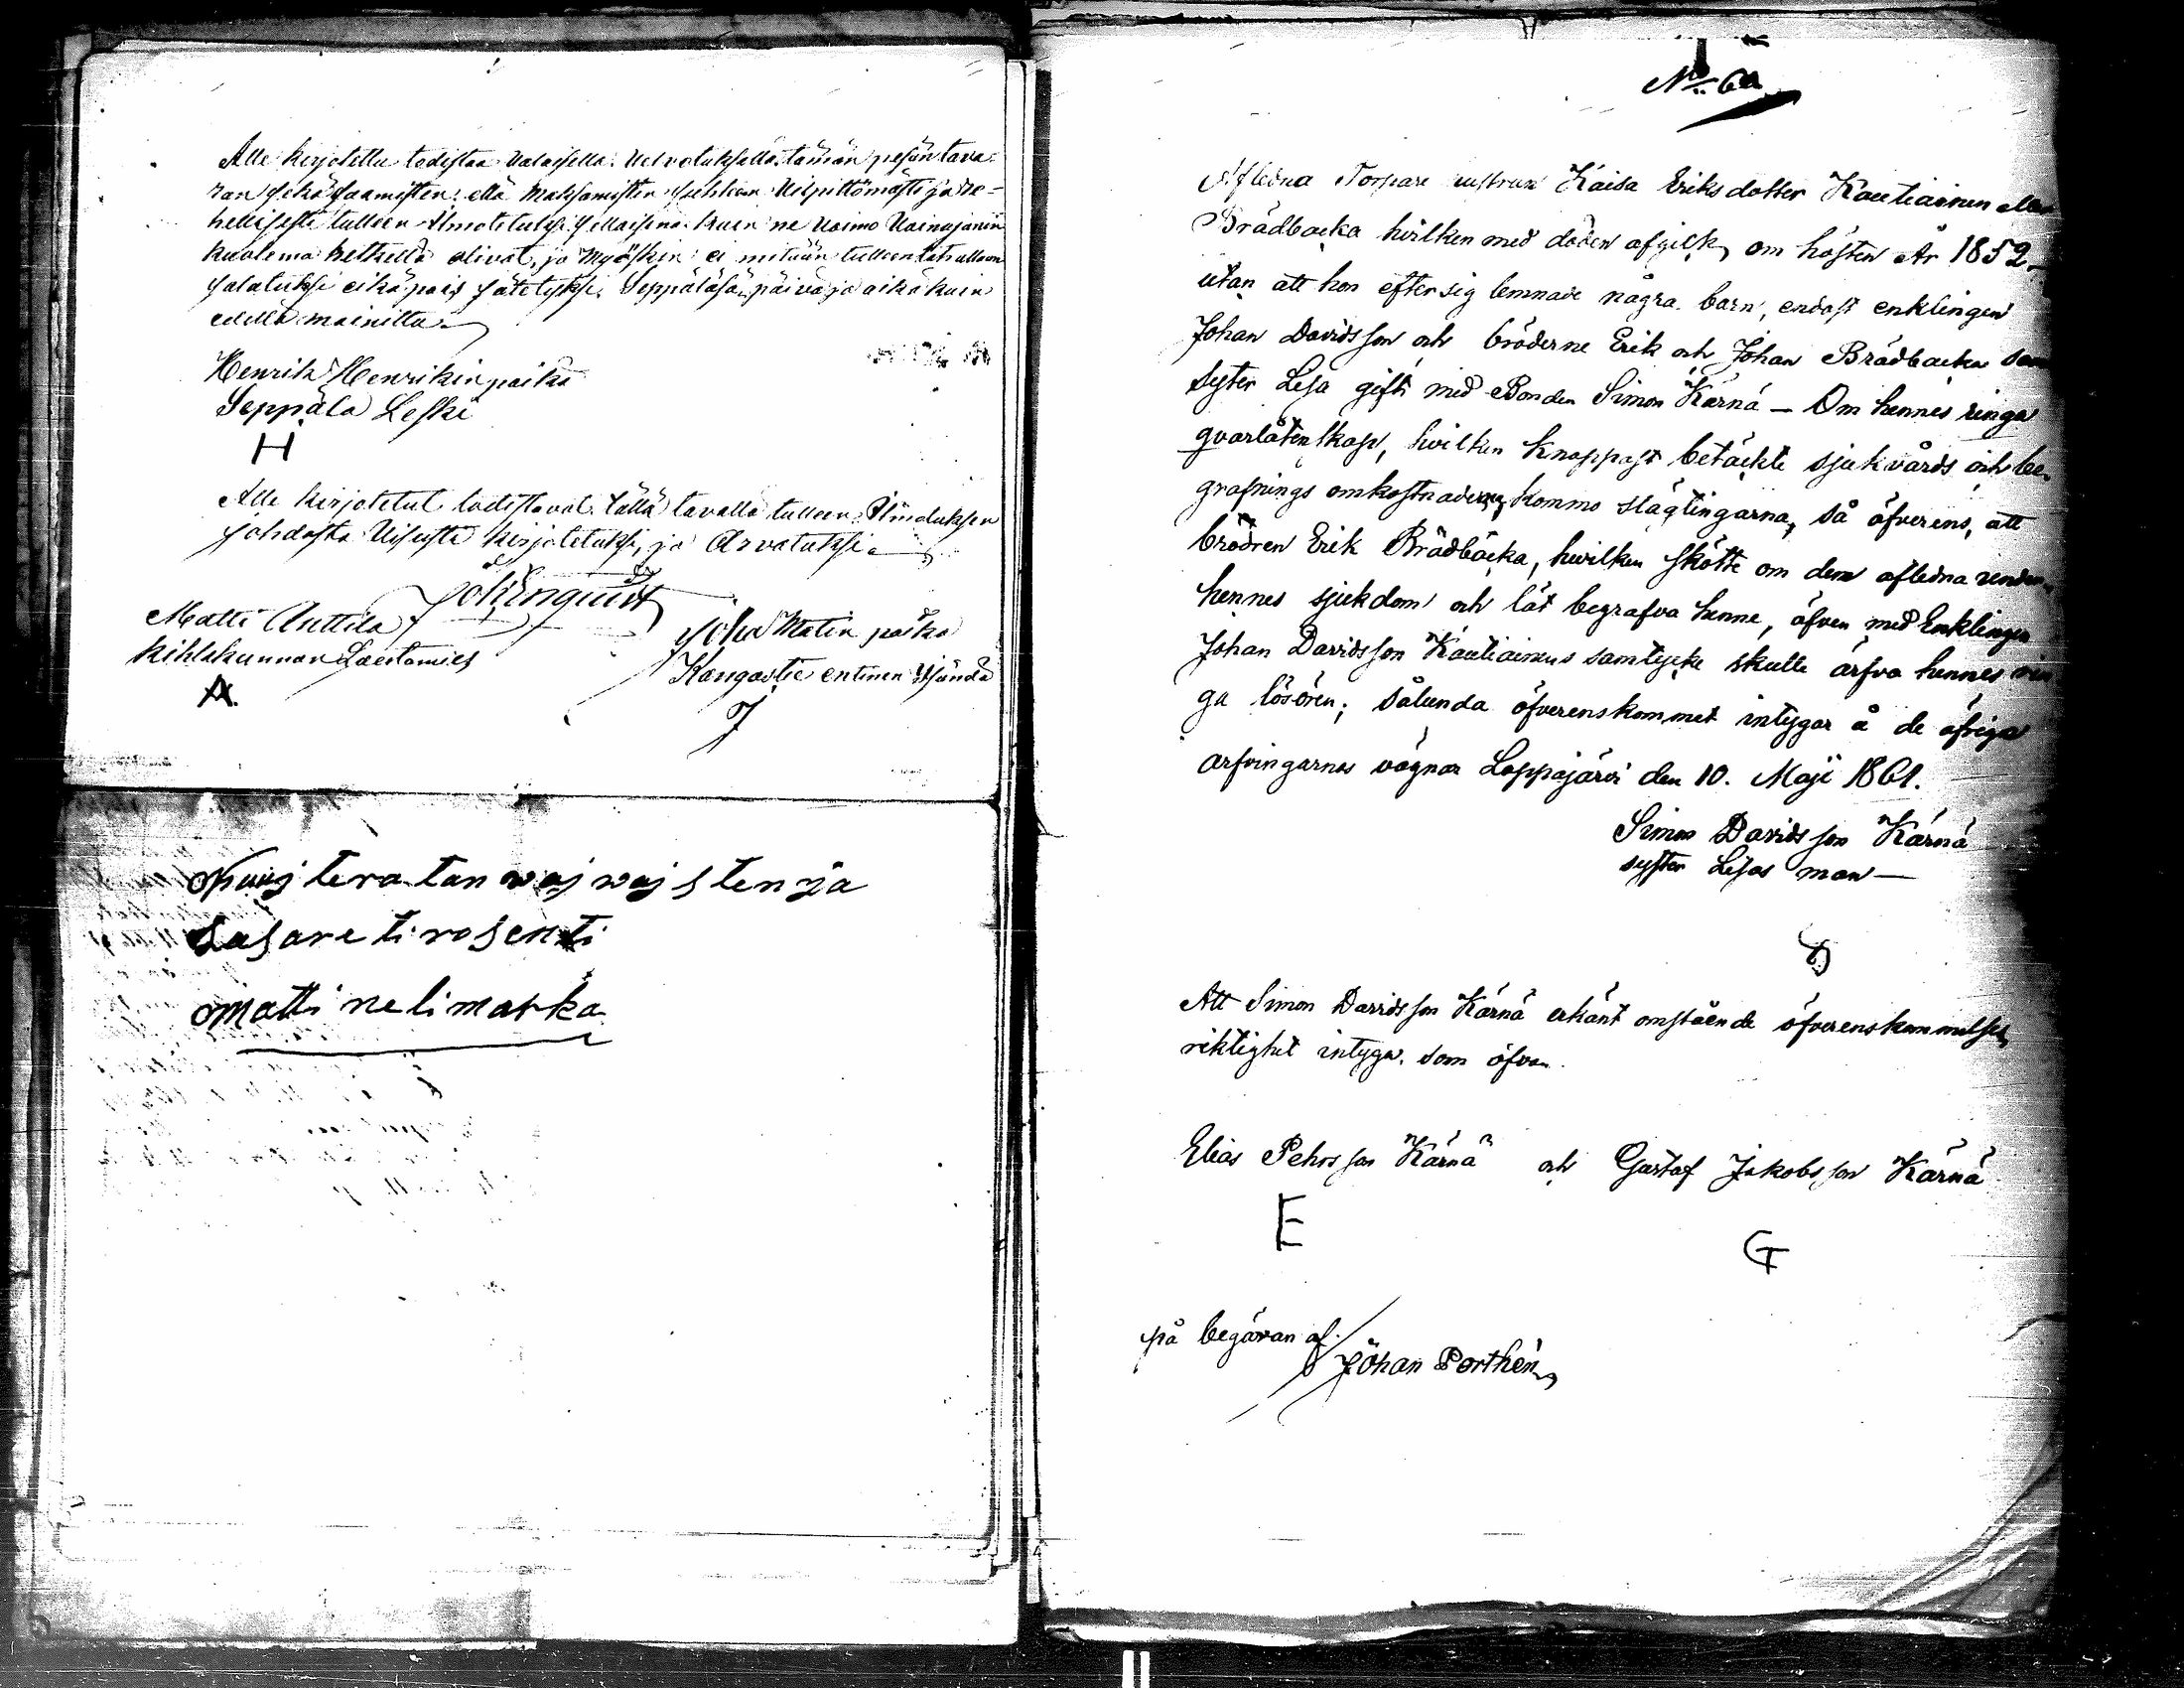 Alle kirjotettu todistaa Valaisella Velvotuksella tämän pesän tava-
ran sekä saamisten että Maksamisten suhteen Vilpittömästi ja re-
hellisesti tulleen Ilmotetuksi sellaisena kuin ne Vaimo Vainajanin
kuolema hetkellä olivat, ja Myöskin ei mitään tulleen
salatuksi eikä pois jätetyksi, Seppäläsä, päivä ja aika kuin
edellä mainittu
Henrik Henrikin poika
Seppälä Leski
H
Alle kirjotetut todistavat tällä tavalla tulleen
johdosta Visusti kirjotetuksi, ja Arvatuksi
Matti Anttila
kihlakunnan Lautamies
A.
Joha Matin poika
Kangastie entinen Isäntä
J
waj waj sten ja
Lasareti rosenti
Matti nelimarka
No 60
Afledna Torpare hustrun Kaisa Eriksdotter Kautiainen eller
Brådbacka hvilken med döden afgick om hösten År 1852
utan att hon efter sig lemnade några barn, endast enklingen
Johan Davidsson och bröderne Erik och Johan Brådbacka samt
syster Lisa gift med Bonden Simon Kärnä — Om hennes ringa
qvarlåtenskap, hvilken knappast betäckte sjukvårds och be-
grafnings omkostnaderna, kommo slägtingarna, så öfverens, att
brodren Erik Brådbacka, hvilken skötte om den afledna under
hennes sjukdom och lät begrafva henne, äfven med Enklingen
Johan Davidsson Kautiainens samtycke skulle ärfva hennes rin
ga lösören; sålunda öfverenskommet intygar å de öfriga
arfvingarnes vägnar Lappajärvi den 10. Maji 1861.
Simon Davidsson Kärnä
syster Lisas man —
Att Simon Davidsson Kärnä erkänt omstående öfverenskommelses
riktighet intyga. som ofvan.
Elias Pehrsson Kärnä och Gustaf Jakobsson Kärnä
E
G
på begäran af
Johan Porthén